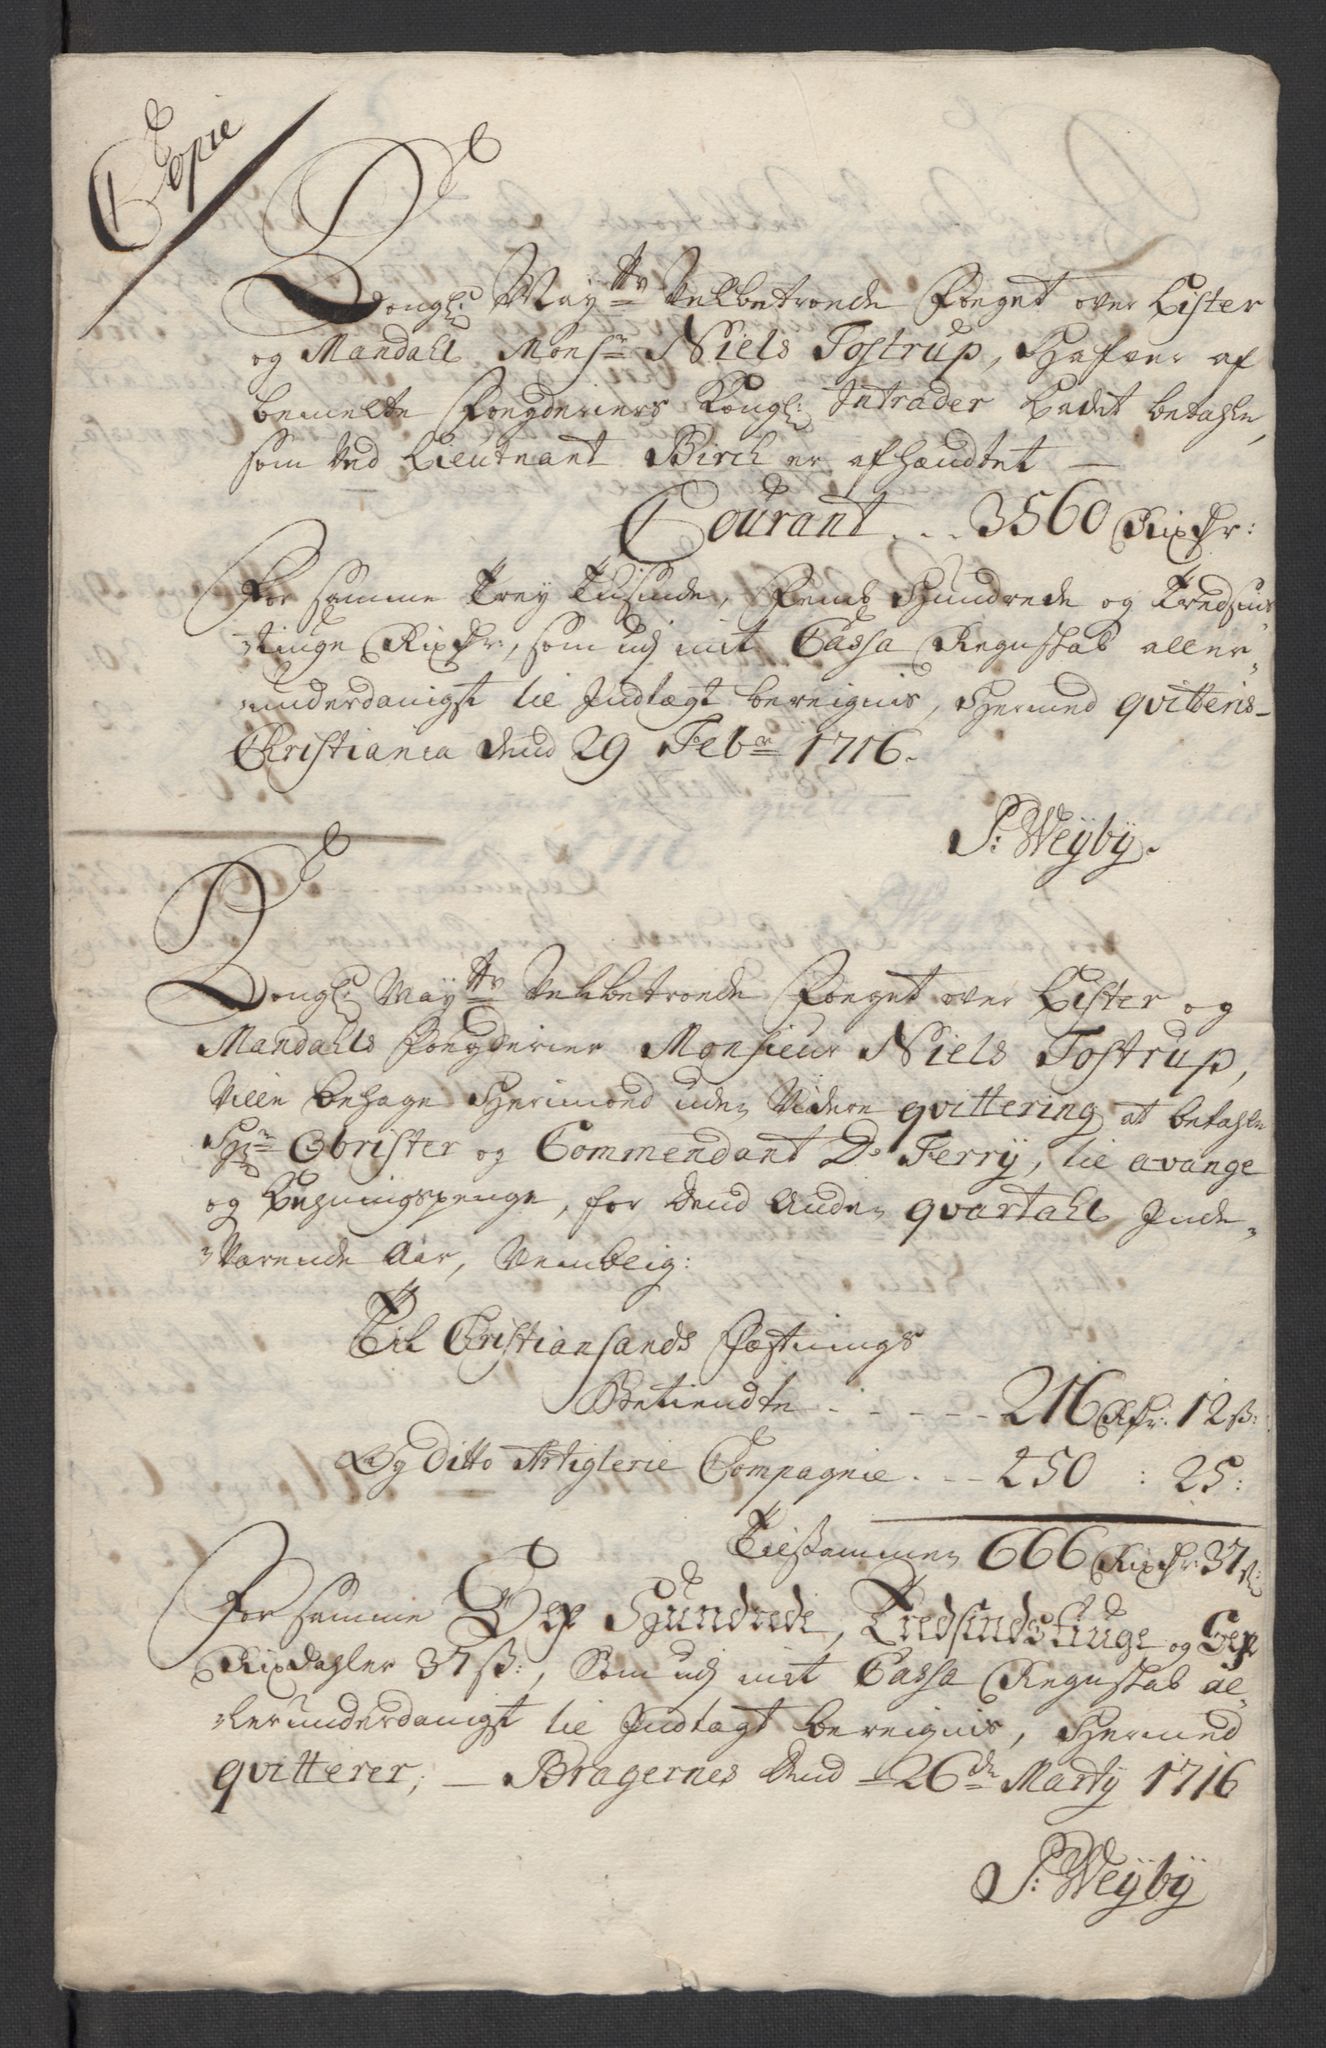 Copie
Kongl: May:tts Velbetroede Foeget over Lister
og Mandahl Monsr Niels Tostrup, Hafver af
bemelte Foegderiers Kongl: Intrader Ladet betahle,
som Ved Lieutnant Birch er afsændtet —
Courant . . . 3560 Rixdr:
For samme Trey Tusinde, Femb Hundrede og Tredsinds
-tiuge Rixdr, som udj mit Cassa Regnskab aller-
-underdanigst til Indtægt bereignis, Hermed qvitteris-
Christiania dend 29 Febr 1716.
P: Weÿbÿ.
Kongl: May:tts Velbetroede Foeget over Lister og
Mandahls Foegderier Monsieur Niels Tostrup,
Ville behage Herimoed uden Videre qvittering at betahle
Hr: Obrister og Commendant D. Ferrÿ, til avange
og Løhningspenge, for dend Anden qvartahl Inde-
-Værende Aar, Nemblig:
Til Christiansands Fæstnings
Betiendte - - - - - 216 Rdr: 12 ß:
Og Ditto Artiglerie Compagnie . - - 250 : 25:
Tilsammen 666 Rixdr 37 ß:
For samme Sex Hundrede, Tredsindstiuge og Sex
Rixdahler 37 ß:, Som udj mit Cassa Regnskab al-
-lerunderdanigst til Indtægt bereignis, Hermed
qvitterer; — Bragernes dend 26de Martÿ 1716
P: Weÿbÿ